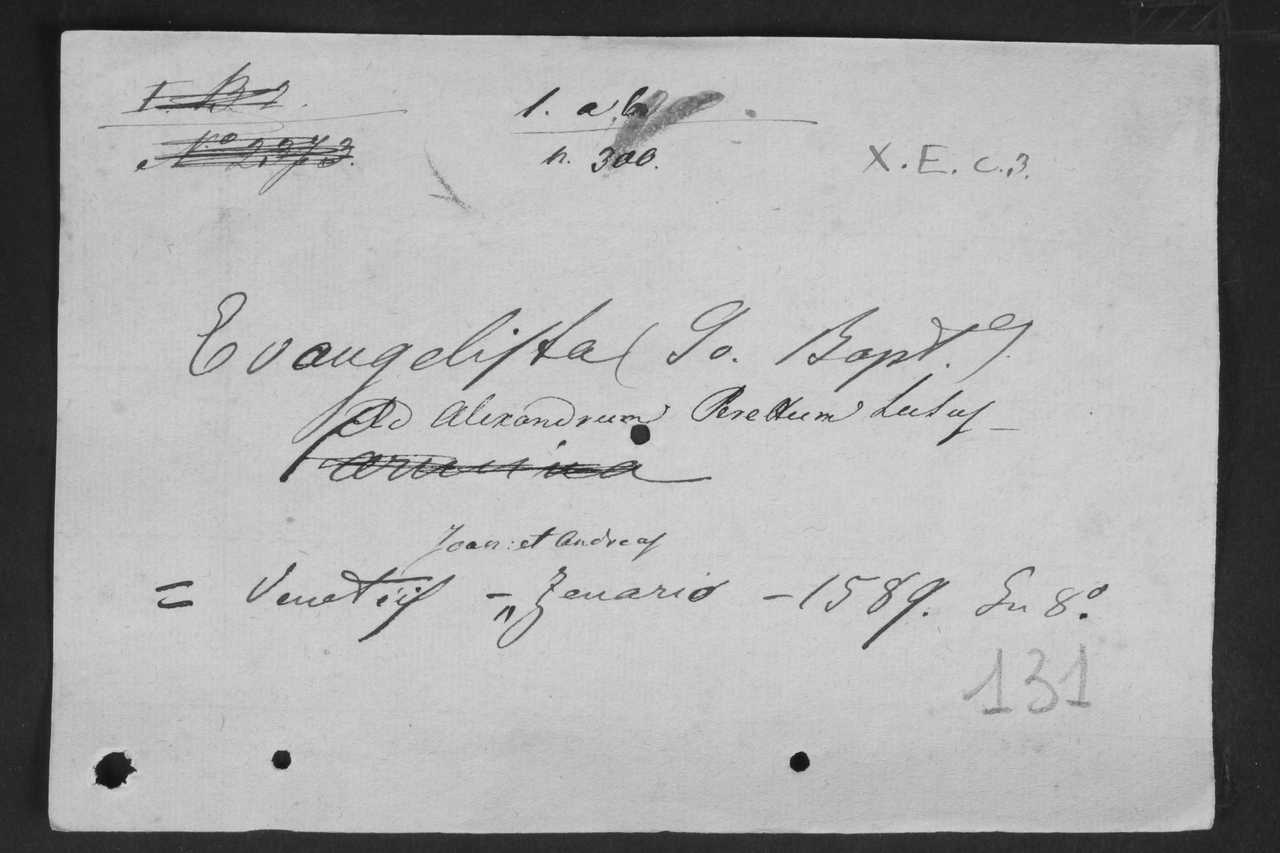 1. a.b.
n. 300.
X. E. c. 3.
Evangelista (Jo. Bapt.)
Ad Alexandrum Perettum
Joan: et Andreas
= Venetiis - Zenario - 1589. In 8.º
131